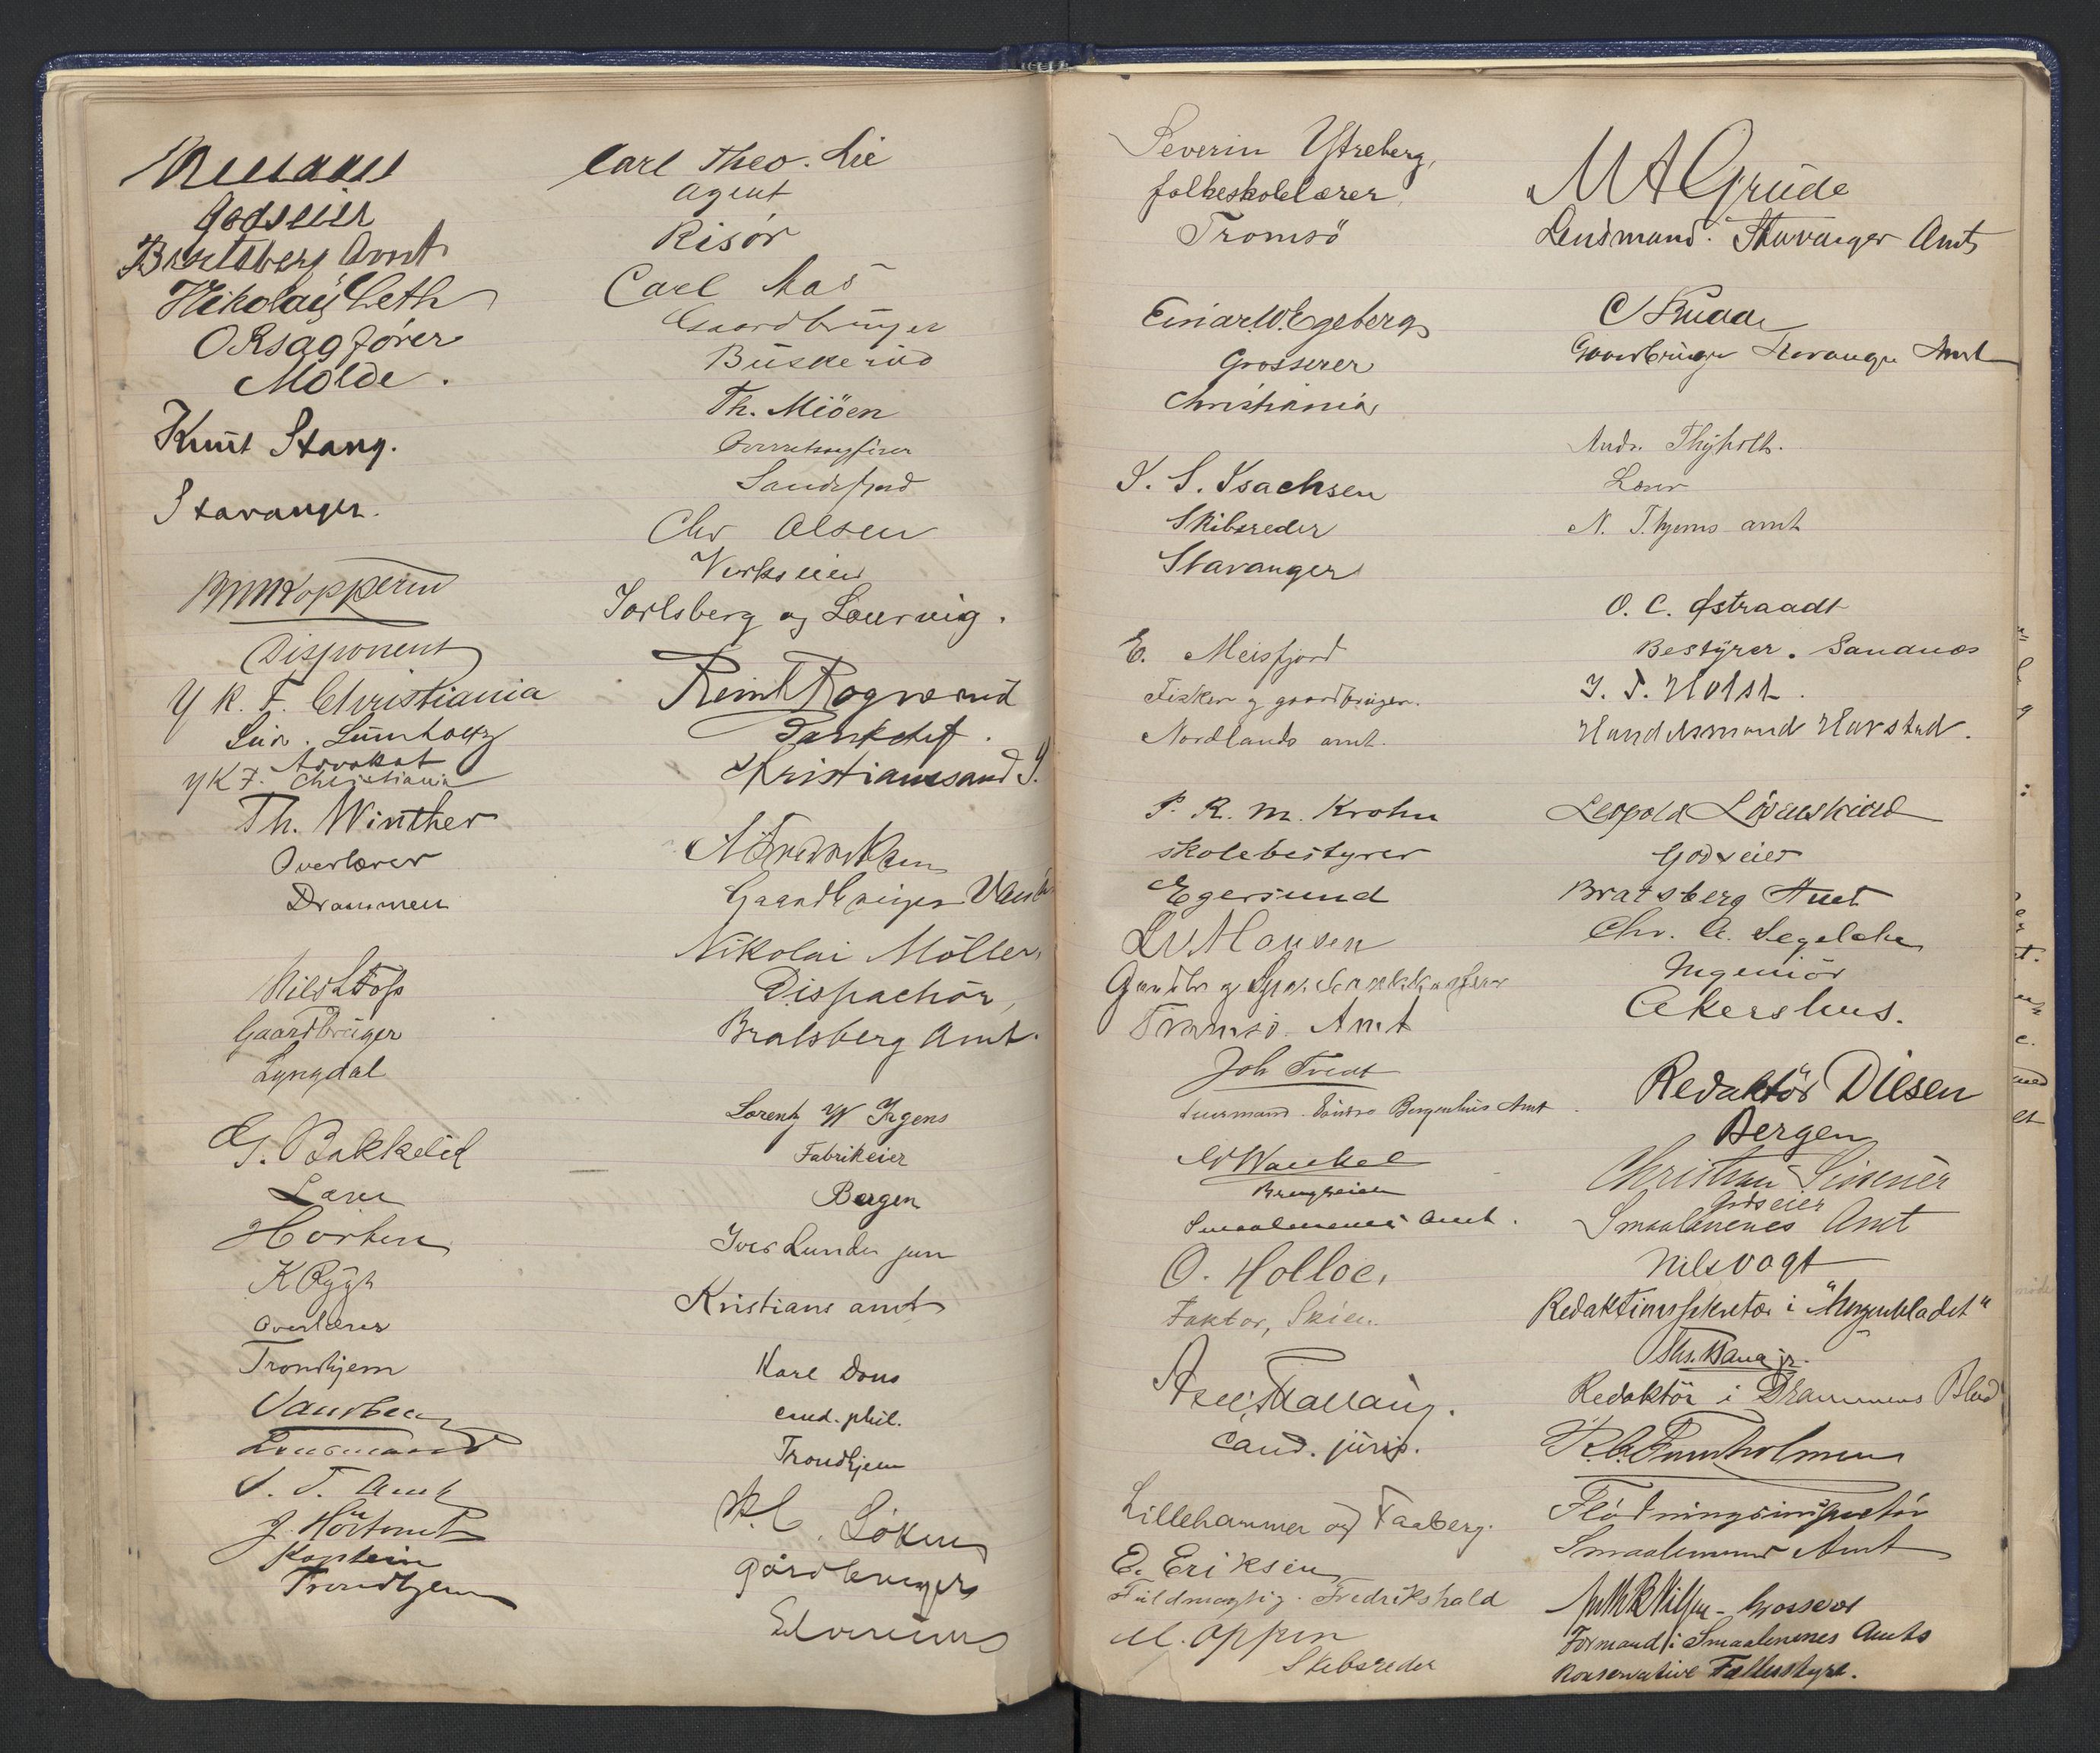 Godseier
Bratsberg Amt
Nikolay Leth
ORsagfører
Molde.
Knut Stang.
Stavanger.
Disponent
Y K. F. Christiania
Advokat
Y K F. Christiania
Th. Winther
Overlærer
Drammen
Gaardbruger
Lyngdal
G. Bakkelid
Lærer
Horten
K Rygh
Overlærer
Trondhjem
Lensmand
S. T. Amt
Kaptein
Trondhjem
Carl Theo. Lie
Agent
Risør
Carl Aas
Gaardbruger
Buskerud
Th. Miöen
Overretssagfører
Sandefjord
Chr Olsen
Verkseier
Jarlsberg og Laurvig.
Bankchef.
Kristianssand S.
Gaardbruger
Nikolai Möller,
Dispachör,
Bratsberg Amt.
Lorentz W Irgens
Fabrikeier
Bergen
Iver Lunder jun
Kristians amt
Karl Dons
cand. phil.
Trondhjem
Løken
Gårdbruger
Elverum
Severin Ytreberg,
folkeskolelærer
Tromsö
Einar W. Egeberg
Grosserer
Christiania
I. S. Isachsen
Skibsreder
Stavanger
E. Meisfjord
Fisker og gaardbruger.
Nordlands amt.
P. R. M. Krohn
Skolebestyrer
Egersund
Tromsö Amt
Joh Tvedt
Lensmand. Söndre Bergenhus Amt
Brugseier
Smaalenenes Amt.
O. Holloe,
Faktor, Skien.
cand. juris.
Lillehammer og Faaberg.
E. Eriksen
Fuldmægtig. Fredrikshald
M. Oppen
Skibsreder
M A Grude
Lensmand. Stavanger Amt
Gaardbruger Stavanger Amt
Andr. Thyholth.
Lærer
N. T.hjems amt
O. C. Østraadt
Bestyrer. Sandnæs
J. P. Holst.
Handelsmand Harstad.
Leopold Løvenskiold
Godseier
Bratsberg Amt
Chr. A. Segelcke
Ingeniör
Akershus.
Redaktör Diesen
Bergen
Christian Sissener
Godseier
Smaalenenes Amt
Nils Vogt
Redaktionssekretær i "Morgenbladet"
Redaktör i Drammens Blad
Flödningsinspektör
Smaalenenes Amt
Grosserer
Formand i Smaalenenes Amts
Konservative Fællesstyre.